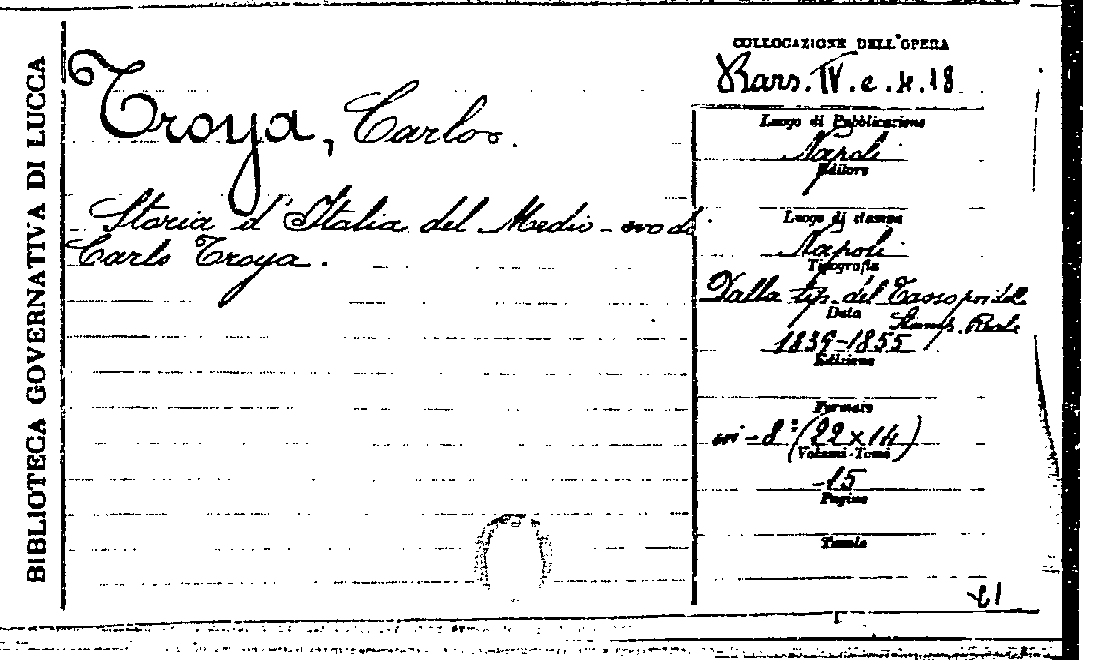 BIBLIOTECA GOVERNATIVA DI LUCCA
Troya, Carlo.
Storia d'Italia del Medio-evo di
Carlo Troya.
COLLOCAZIONE DELL'OPERA
Bars. IV. c. 4. 18
Luogo di Pubblicazione
Napoli
Editore
Luogo di stampa
Napoli
Tipografia
Dalla tip. del Tasso poi dalla
Stamp. Reale
Data
1839-1855
Edizione
Formato
in-8º (22x14)
Volumi-Tomi
15
Pagine
Tavole